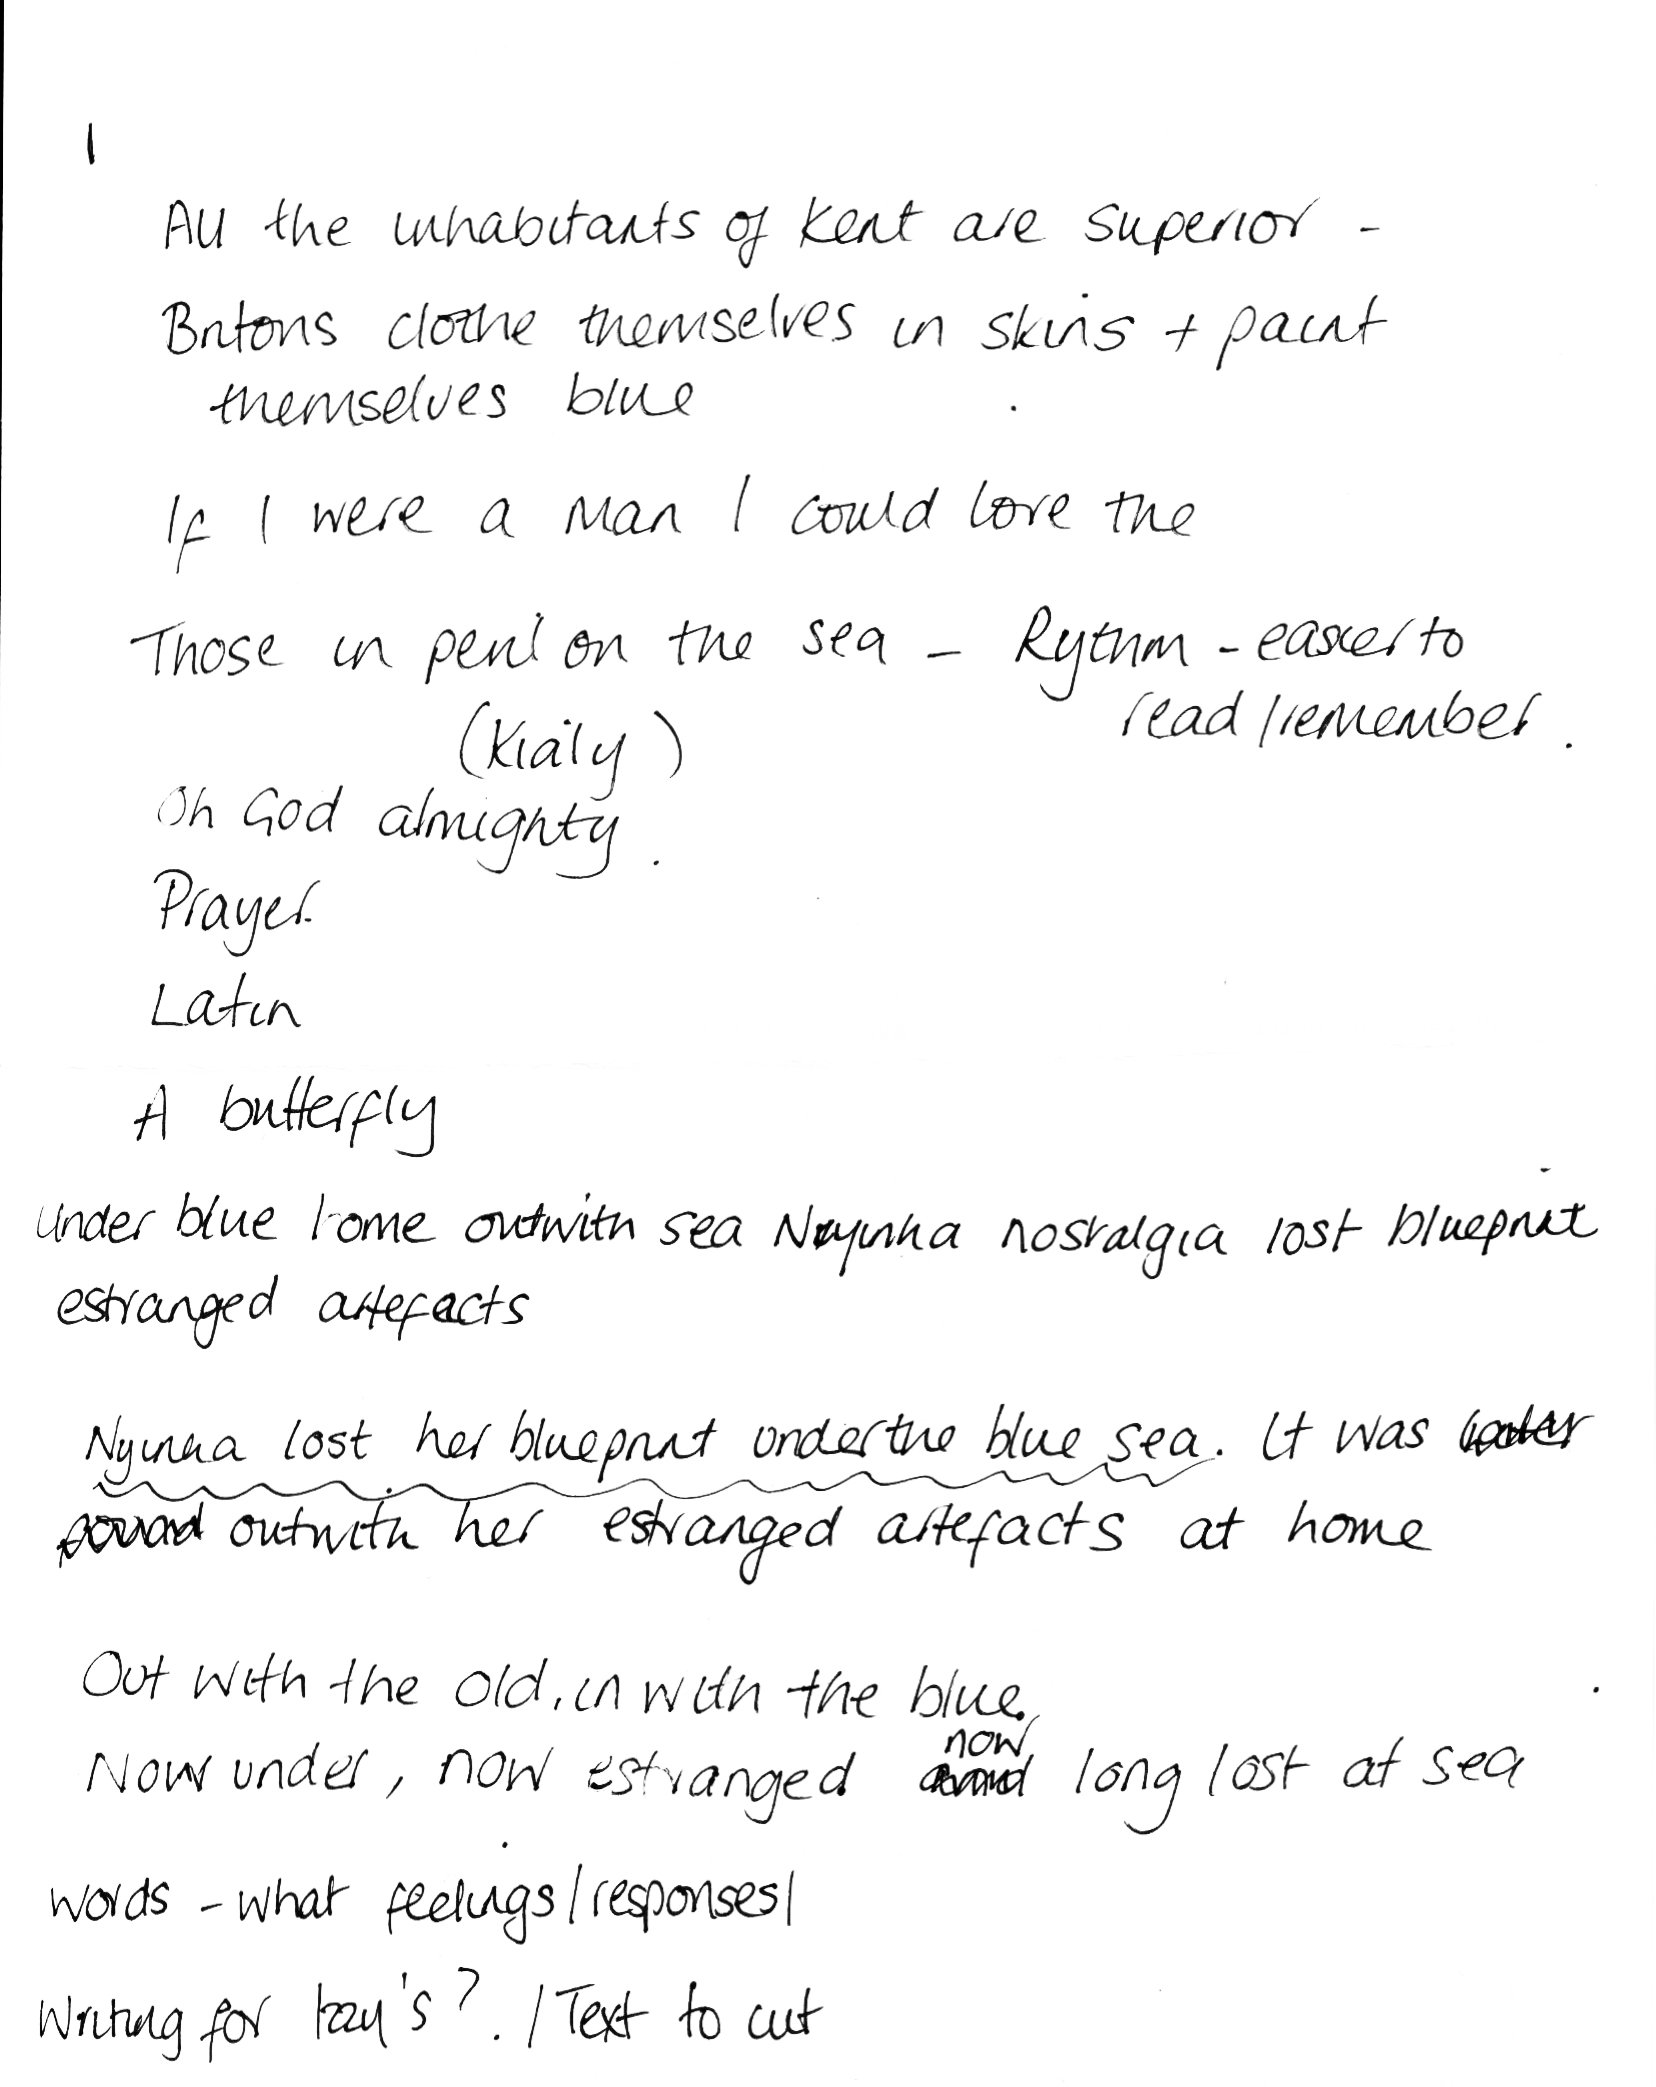 1
All the inhabitants of Kent are superior -
Britons clothe themselves in skins + paint
themselves blue
If I were a man I could love the
Those in peril on the sea - Rythm - easier to
read / remember.
(Kialy)
Oh God almighty.
Prayer.
Latin
A butterfly
under blue home outwith sea Nyinha nostalgia lost blueprint
estranged artefacts
lost her blueprint under the blue sea. It was
outwith her estranged artefacts at home
Out with the old, in with the blue.
now
Now under, now estranged long lost at sea
words - what feelings / responses /
Writing for ? . / Text to cut